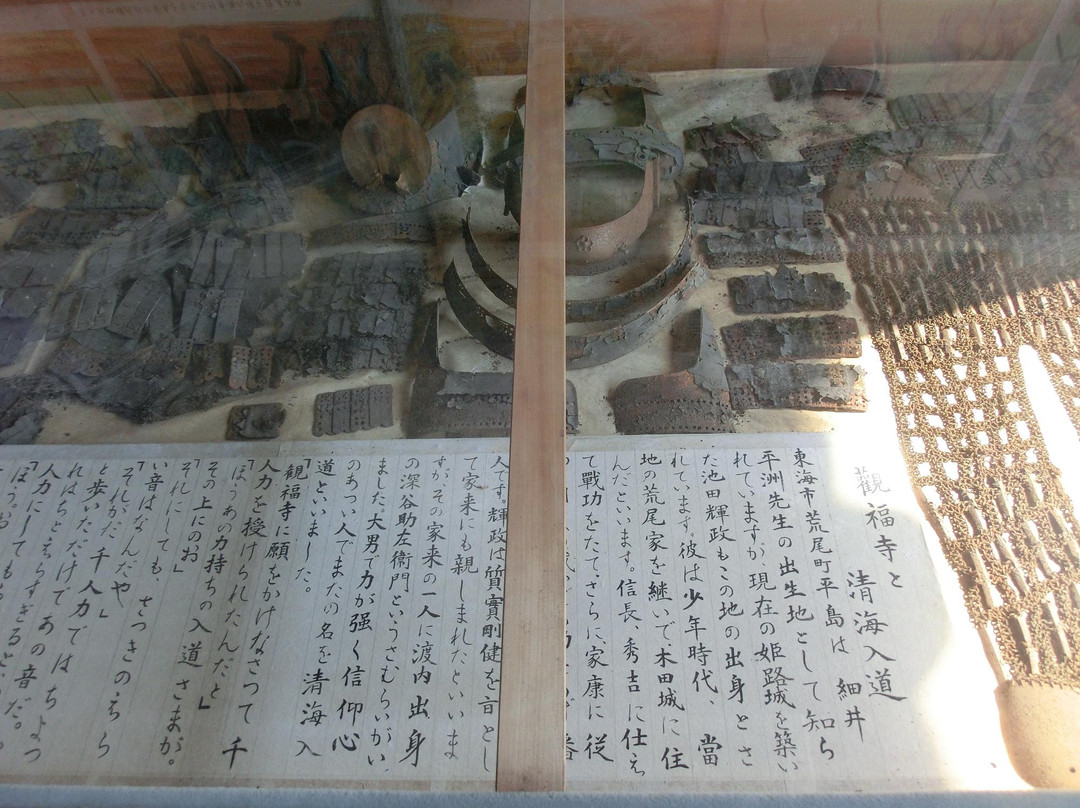 觀福寺と
清海入道
東海市荒尾町平島は 細井
平洲先生の出生地として知ら
れていますが、現在の姫路城を築い
た池田輝政もこの地の出身とさ
れています。彼は少年時代、當
地の荒尾家を継いで木田城に住
んだといいます。信長、秀吉に仕え
て戰功をたて、さらに、家康に従
人です。輝政は質實剛健を旨とし
て家来にも親しまれたといいま
すが、その家来の一人に渡内出身
の深谷助左衛門というさむらいがい
ました。大男で力が强く信仰心
のあつい人でまたの名を清海入
道といいました。
「観福寺に願をかけなさって千
人力を授けられたんだと」
「ほうあの力持ちの入道さまが。
その上にのお」
「それにしても、さっきのえら
い音はなんだや」